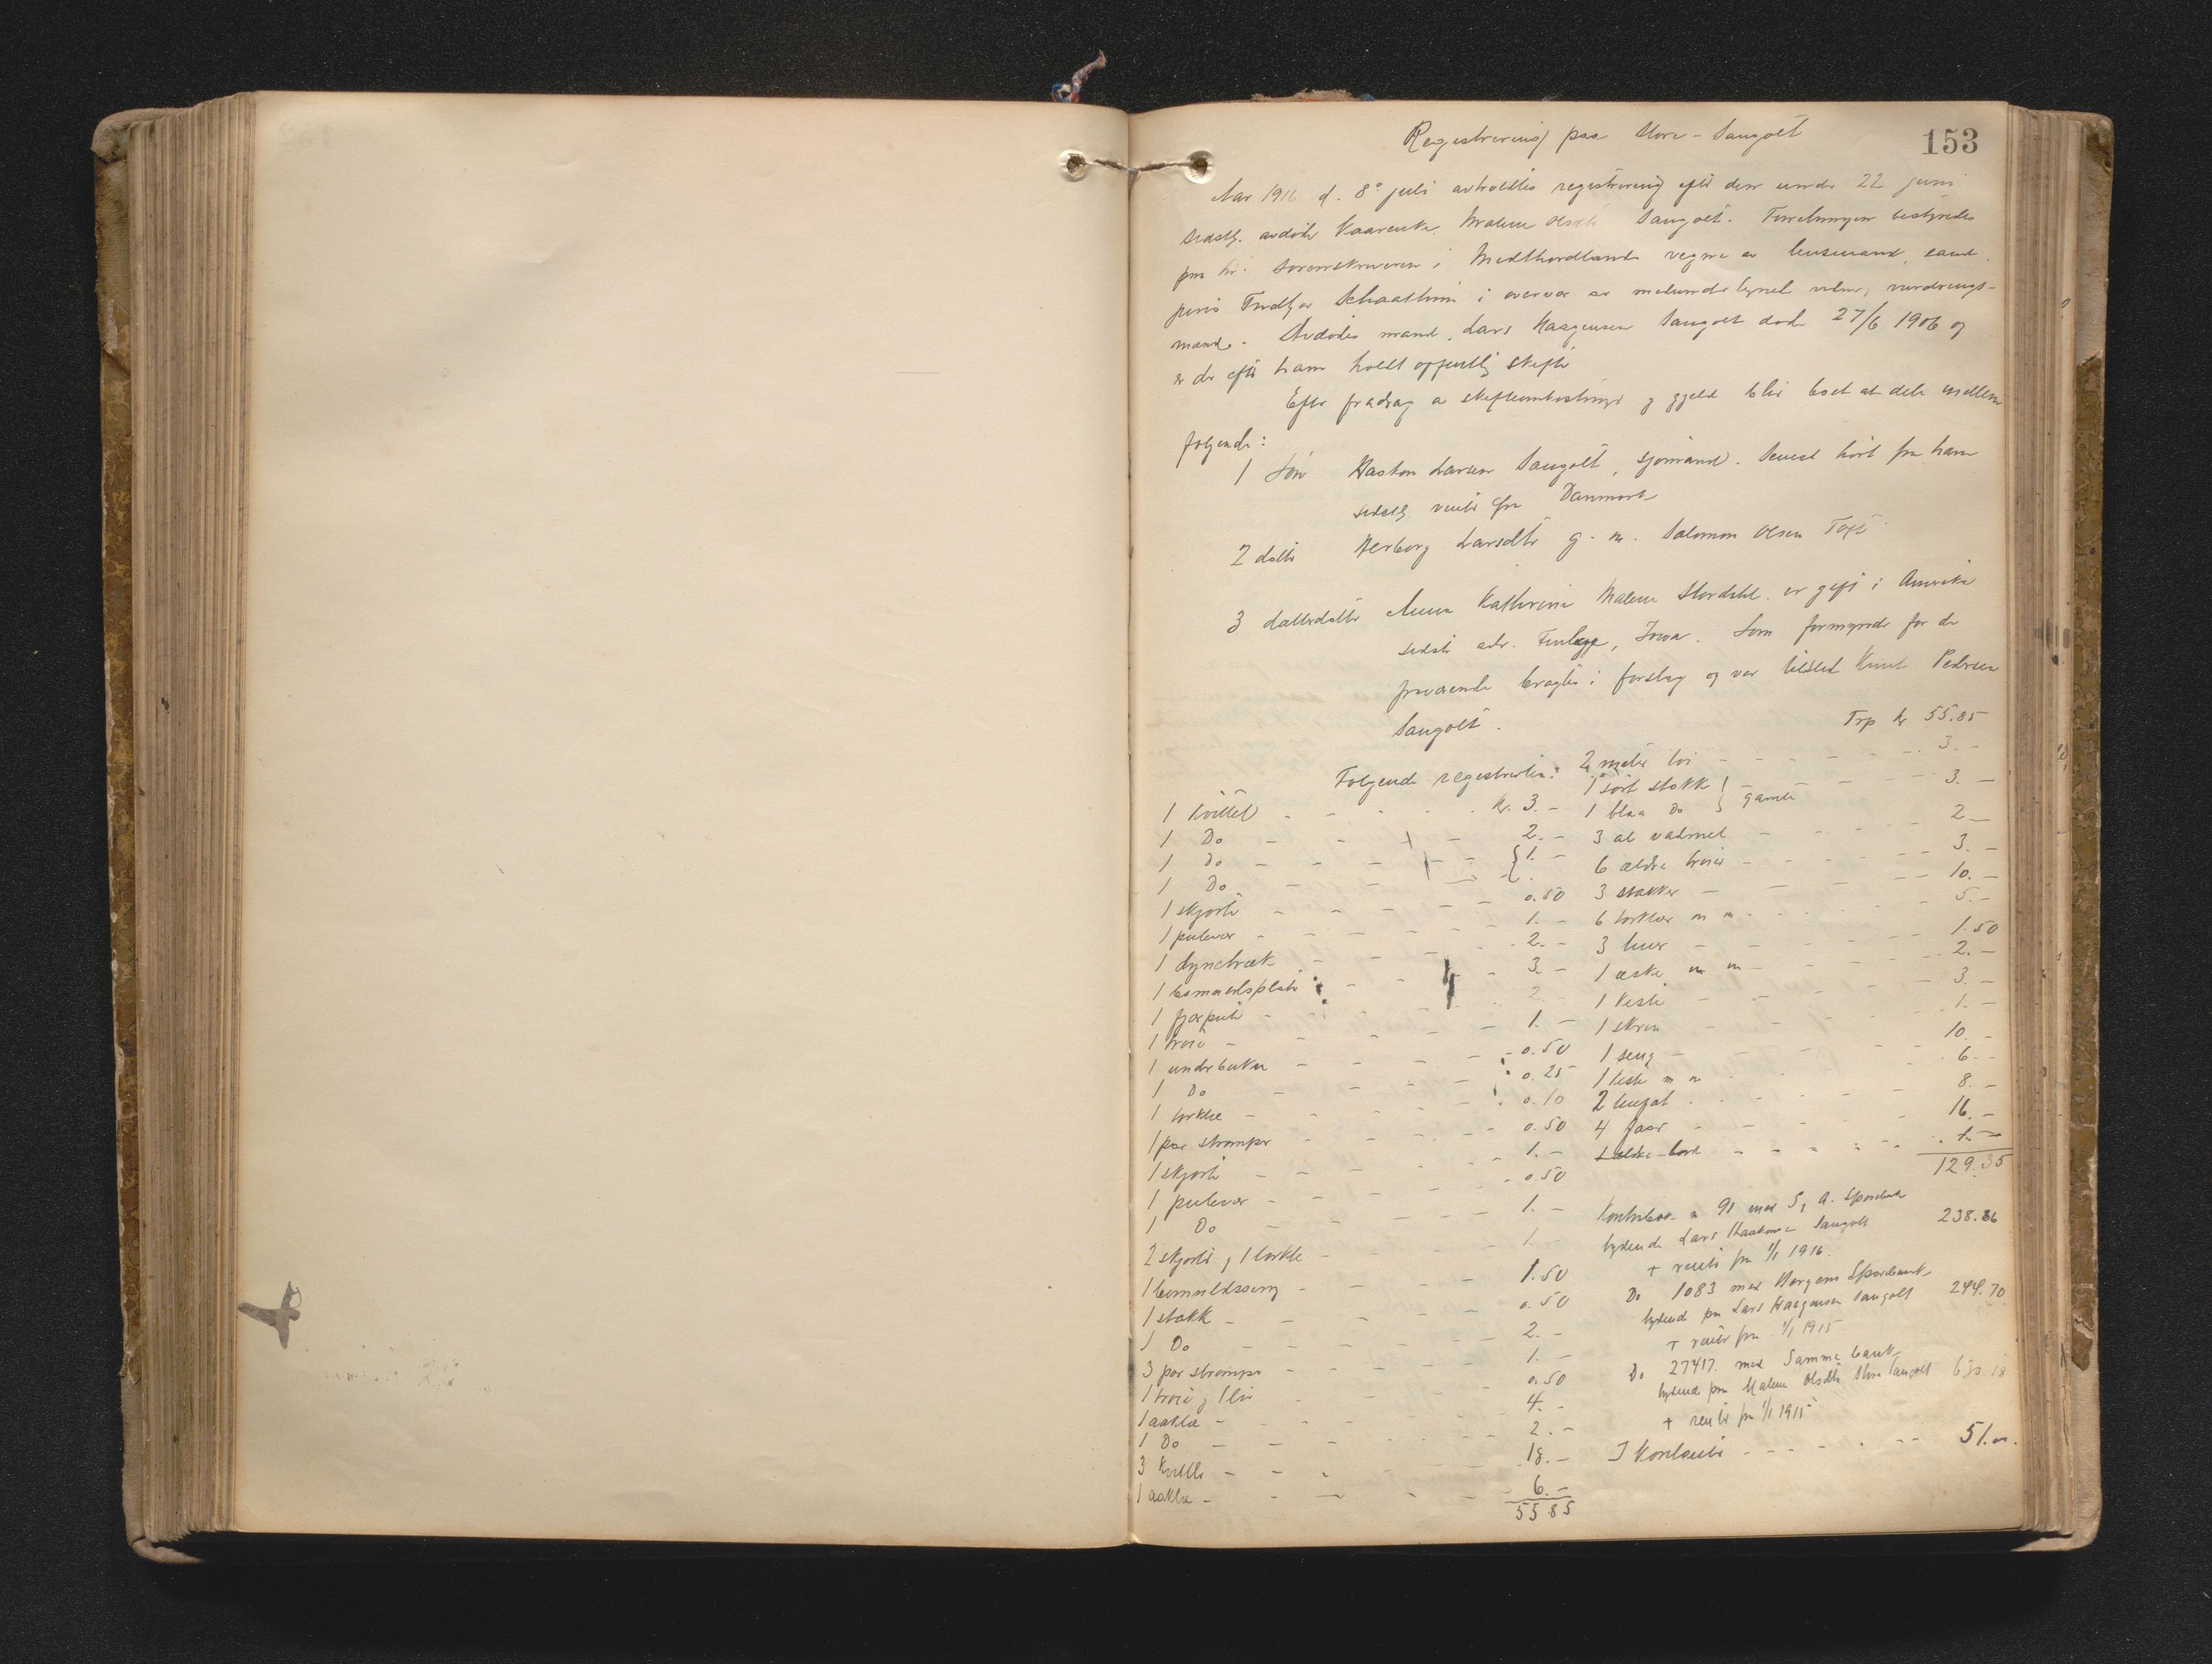 153
Registrering paa Store-Sangolt
Aar 1916 d. 8de juli avholdtes registrering efter den under 22 juni
sidstl. avdøde kaarenke Malene Olsdtr Sangolt. Forretningen bestyredes
paa hr. Sorenskriveren i Midthordlands vegne av lensmand, cand.
juris Fridtjov Schaathun i overvær av medundertegnede vidner, vurderings-
mænd. Avdødes mand, Lars Haagensen Sangolt døde 27/6 1906 og
er der efter ham holdt offentlig skifte
Efter fradrag av skifteomkostninger og gjeld blir boet at dele mellem
følgende:
1 Søn Haakon Larsen Sangolt, sjømand. Senest hørt fra ham
sidstl. vinter fra Danmark
2 datter Herborg Larsdtr g. m. Salomon Olsen Toft
3 datterdatter Anna Kathrina Malene Stordahl er gift i Amerika
sidste adr. Iowa. Som formynder for de
fraværende bragtes i forslag og var tilsted Knut Pedersen
Sangolt.
Følgende registrertes:
1 kvittel - - - kr. 3. -
1 Do - - - 2. -
1 Do - - - { 1. -
1 Do - - -
1 skjorte - - - 0.50
1 putevar - - - 1. -
1 dynetræk - - - 2. -
1 bomuldsplate - - - 3 -
1 fjærpute - - - 2. -
1 troie - - - 1. -
1 underbukse - - - 0.50
1 Do - - - 0.25
1 tørklæ - - - 0.10
1 par strømper - - - 0.50
1 skjorte - - - 1. -
1 putevar - - - 0.50
1 Do - - - 1. -
2 skjorter og 1 tørkle - - - 1. -
1 bomuldsserg - - - 1.50
1 stakk - - - 0.50
1 Do - - - 2. -
3 par strømper - - - 1. -
1 troie og 1 liv - - - 0.50
1 aakla - - - 4. -
1 Do - - - 2. -
3 kvitler - - - 18. -
1 aakla - - - 6. -
55 85
Trp kr 55.85
2 meter toi - - - 3. -
1 sort stakk } gamle - - - 3. -
1 blaa Do
3 al vadmel - - - 2 -
6 ældre troier - - - 3. -
3 stakker - - - 10. -
6 tørklær m m - - - 5. -
3 huer - - - 1.50
1 æske m m - - - 2. -
1 kiste - - - 3. -
1 skrin - - - 1. -
1 seng - - - 10. -
1 kiste m m - - - 6. -
2 - - - 8. -
4 faar - - - 16. -
1 ældre bord - - - 1. -
129.35
Kontrabok n 91 med S. A. Sparebank
lydende Lars Haakonsen Sangolt 238.86
+ renter fra 1/1 1916.
Do 1083 med Bergens Sparebank
lydende paa Lars Haagensen Sangolt 244.70
+ renter fra 1/1 1915
Do 27417 med Samme bank
lydende paa Malene Olsdtr Store Sangolt 630.18
+ renter fra 1/1 1915
I Kontanter - - - 51.00